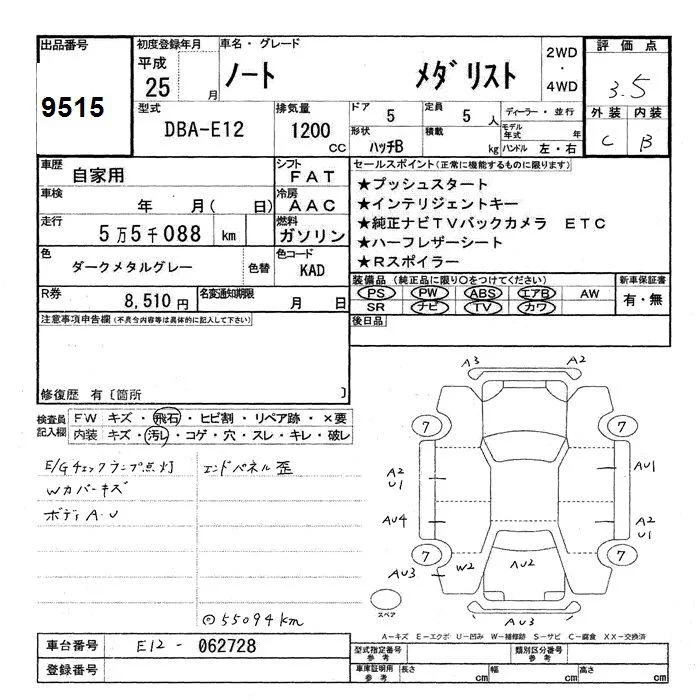 出品番号
9515
初度登録年月
平成
25 月
車名・グレード
ノート メダリスト
2WD
・
4WD
評価点
3.5
型式
DBA-E12
排気量
1200
CC
ドア
5
定員
5 人
ディーラー・並行
形状
ハッチB
積載
kg
モデル年式 年
ハンドル 左・右
外装 内装
C B
車歴
自家用
シフト
FAT
車検
年 月( 日)
冷房
AAC
走行
5万5千088 km
燃料
ガソリン
色
ダークメタルグレー
色替
色コード
KAD
R券
8,510円
名変通知期限
月 日
セールスポイント(正常に機能するものに限ります)
★プッシュスタート
★インテリジェントキー
★純正ナビTVバックカメラ ETC
★ハーフレザーシート
★Rスポイラー
装備品 (純正品に限り〇をつけてください)
新車保証書
PS PW ABS エアB AW
有・無
SR ナビ TV カワ
後日品
注意事項申告欄(不具合内容等は具体的に記入して下さい)
修復歴 有〔箇所 〕
検査員
記入欄
FW キズ・飛石・ヒビ割・リペア跡・×要
内装 キズ・汚レ・コゲ・穴・スレ・キレ・破レ
E/Gチェックランプ点灯
エンドパネル歪
Wカバーキズ
ボディA・U
◎55094km
A3 A2
7 7
A2
U1
AU1
AU4
A2
U1
7 7
AU3
W2
AU2
スペア
AU3
A-キズ E-エクボ U-凹み W-補修跡 S-サビ C-腐食 XX-交換済
車台番号
E12 - 062728
登録番号
型式指定番号
参考
類別区分番号
参考
車庫証明用
参考
長さ cm
幅 cm
高さ cm